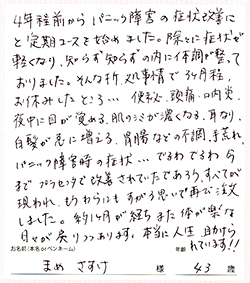 4年程前からパニック障害の症状改善に
と定期コースを始めました。除々に症状が
軽くなり、知らず知らずの内に体調が整って
おりました。そんな折、処事情で3ヶ月程、
お休みしたところ… 便秘、頭痛、口内炎、
夜中に目が覚める、肌のシミが濃くなる、耳なり、
白髪が急に増える、胃腸などの不調、手荒れ、
パニック障害時の症状…でるわでるわ 今
まで プラセンタで改善されていたであろう、すべてが
現われ、もうわらにもすがる思いで再び注文
しました。約1ヶ月が経ちまた体が楽な
日々が戻りつつあります。本当に人生、助けら
れています!!
お名前(本名orペンネーム) 年齢
まめ さすけ 様 43 歳